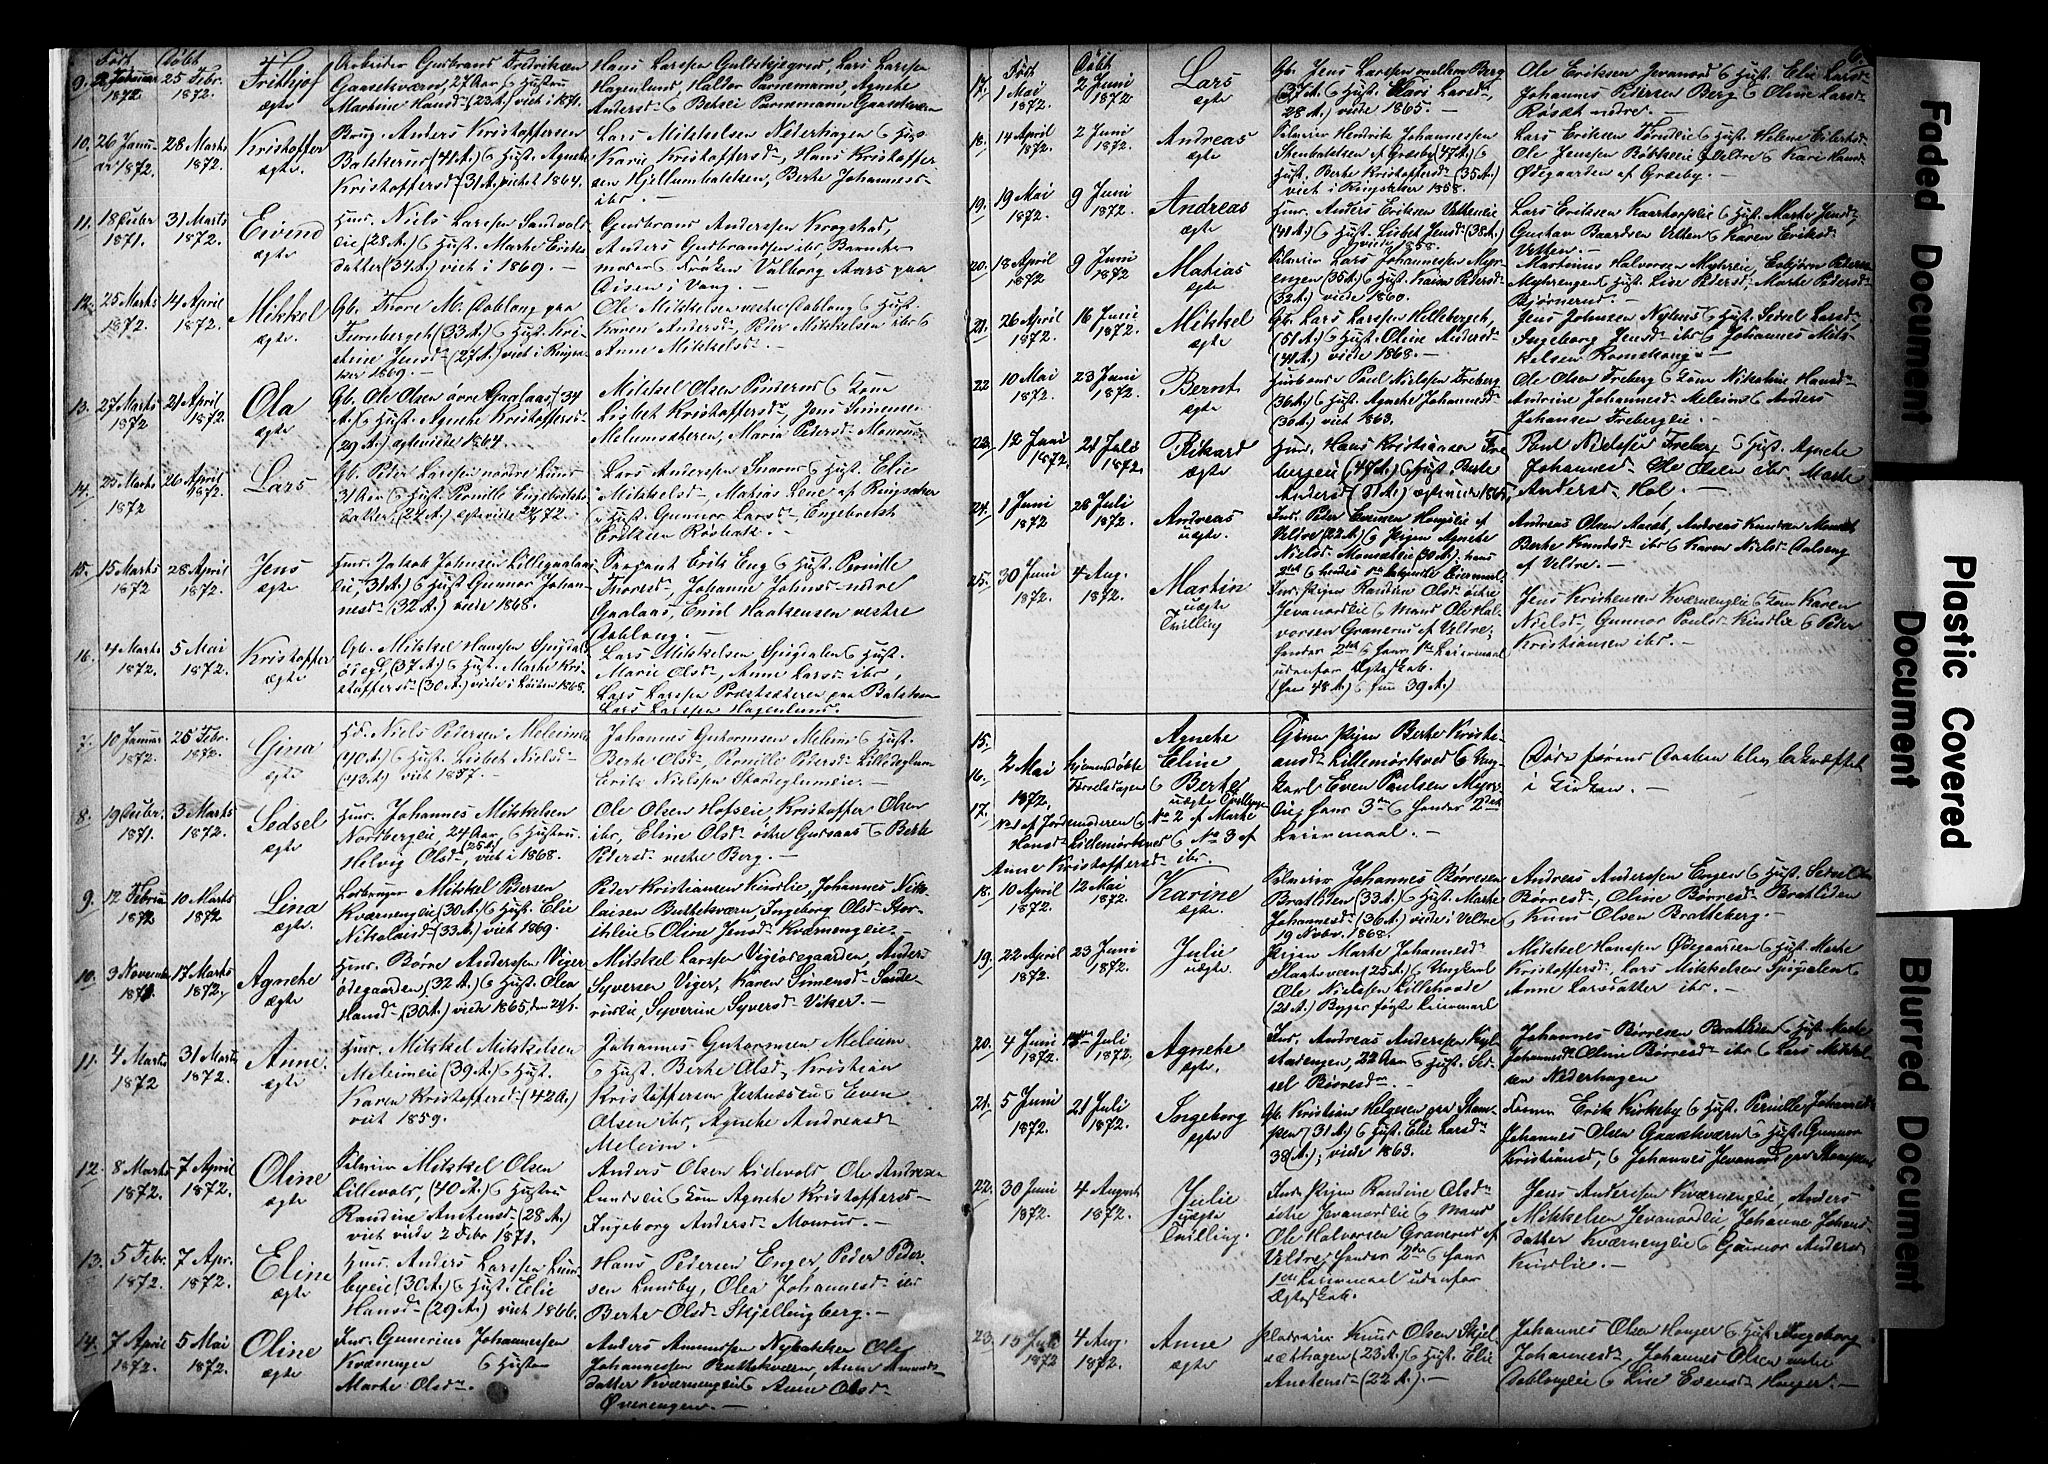 Født Døbt
9. 2 Februar 1872 25 Febr. 1872. Frithjof ægte
Arbeider Gudbrand Fredriksen
Gaasekværn, 27 Aar & Hustru
Marthine Hansd. (23 A.) viet i 1871.
Hans Larssen
Hagenlund, Halvor Parnemann, Agnethe
Andersd. & Betsei Parnemann Gaasekværn
10. 26 Januar 1872. 28 Marts 1872. Kristoffer ægte
Brug. Anders Kristoffersen
Balskerud (41 A.) & Hust. Agnethe
Kristoffersd. (31 A.) viet 1864.
Lars Mikkelsen Nederhagen & Hust.
Karie Kristoffersd., Hans Kristoffer
sen Hjellumbakken, Berthe Johannesd.
ibr.
11. 18 Octbr 1871. 31 Marts 1872. Eivind ægte
Huus. Niels Larssen Sandvold
eie (28 A.) & Hust. Marthe Eriks
datter (34 A.) viet i 1869.
Gudbrand Anderssen Krogstad,
Anders Gudbrandsen ibr,
Frøken Valborg Aars paa
i Vang.
12. 25 Marts 1872. 14 April 1872. Mikkel ægte
Gb. Thore M. Dobloug paa
Furnberget (33 A.) & Hust. Kri-
stine Jensd. (27 A.) viet i Ringsa
ker 1869.
Ole Mikkelsen vestre Dobloug & Hust.
Karen Andersd., Peder Mikkelsen ibr &
Anne Mikkelsd.
13. 27 Marts 1872 21 April 1872. Ola ægte
Gb. Ole Olsen øvre Gaalaas (34
A.) & Hust. Agnethe Kristoffersd.
(29 A.) ægteviede 1864.
Mikkel Olsen Pinderud & Kone
Lisbet Kristoffersd., Jens Simensen
Melumsæteren, Maria Pedersd. Monrud.
14. 25 Marts 1872 26 April 1872. Lars ægte
Gb. Peder Larssen nordre Lund
31 Aar & Hust. Pernille Engebrets
datter (24 A.) ægteviede 72.
Lars Anderssen & Hust. Elie
Mikkelsd., Mathias Lene af Ringsaker
& Hust. Gunnor Larsd., Engebreth
Eriksen
15. 15 Marts 1872 28 April 1872. Jens ægte
Huus. Jakob Johnsen Lillegaalaas
eie, 31 A.) & Hust. Gunnor Johan-
nesd. (32 A.) viede 1868.
Sergeant Erik Eng & Hust. Pernille
Thoresd., Johanne Johnsd. nedre
Gaalaas, Emil Haakensen vestre
Dobloug.
16. 4 Marts 1872. 5 Mai 1872. Kristoffer ægte
Gb. Mikkel Hanssen Spigdal
ødegd. (37 A.) & Hust. Marthe Kri-
stoffersd. (30 A.) viede i Løiten 1868.
Lars Mikkelsen Spigdalen & Hust.
Marie Olsd., Anne Larsd. ibr,
Lars Larssen Præstesæteren paa
Lars Larssen Hagenlund.
7. 10 Januar 1872. 25 Febr. 1872. Gina ægte
Sd. Niels Pedersen Meleimeie
(40 A.) & Hust. Lisbet Nielsd.
(43 A.) viet 1857.
Johannes Guttormsen Meleim & Hust.
Berthe Olsd., Pernille Pedersd. Lilledeglum
Erik Nielssen Stordeglumeie.
8. 19 Octbr. 1871. 3 Marts 1872. Sedsel ægte
Huus. Johannes Mikkelsen
Norbergeie 24 Aar & Hustru.
Helvig Olsd. (25 A.) viet i 1868.
Ole Olsen Hofseie, Kristoffer Olsen
ibr, Eline Olsd. østre Gudsaas & Berthe
Pedersd. vestre Berg.
9. 12 Februar 1872 10 Marts 1872. Lina ægte
Mikkel Persen
Kværnengeie (30 A.) & Hust. Elie
Nikolaisd. (33 A.) viet 1869.
Peder Kristiansen Kindlie, Johannes Niko
laisen Buttekværn, Ingeborg Olsd.
& Oline Jensd. Kværnengeie.
10. 3 November 1871. 17 Marts 1872. Agnethe ægte
Huus. Børre Anderssen Viger
ødegaarden (32 A.) & Hust. Olea
Hansd. (30 A.) viede 1865.
Mikkel Larssen Vigerødegaarden, Anders
Syversen Viger, Karen Simensd.
Syverine Syversd. Viker.
11. 4 Marts 1872 31 Marts 1872. Anne. ægte
Huus. Mikkel Mikkelsen
Meleimeie (39 A.) & Hust.
Karen Kristoffersd. (42 A.)
viet 1859.
Johannes Guttormsen Meleim
& Hust. Berthe Olsd., Kristian
Kristoffersen & Even
Olsen ibr, Agnethe Andreasd.
Meleim.
12. 8 Marts 1872. 7 April 1872. Oline ægte
Mikkel Olsen
Lillevold, (40 A.) & Hustru
Randine Anstensd. (28 A.)
viet viede 2 Febr 1871.
Anders Olsen Lidevold, Ole Andresen
Lundseie & Kone Agnethe Kristoffersd.
Ingeborg Andersd. Monrud.
13. 5 Febr. 1872. 7 Apr. 1872. Eline ægte
Huus. Anders Larssen Lund
byeie (30 A.) & Hust. Elie
Hansd. (29 A.) viet 1866.
Hans Pedersen Enger, Peder Peder-
sen Lundby, Olea Johannesd. ibr
Berthe Olsd. Skjellingberg.
14. 7 April 1872. 5 Mai 1872. Oline ægte
Inr. Gunerius Johannessen
Kværnenger & Hustru
Marthe Olsd.
Anders Amundsen Nybakken, Ole
Johannessen Buttekværn, Anne Amunds
datter Kværnengeie & Anne Olsd.
Øverengen.
6.
Født Døbt
17. 1 Mai 1872. 2 Juni 1872 Lars ægte
Gb. Jens Larssen mellem Berg
(37 A.) & Hust. Kari Larsd.
28 A.) viede 1865.
Ole Eriksen Jevanord & Hust. Elie Larsd.
Johannes Pedersen Berg & Oline Larsd.
nedre.
18. 14 April 1872. 2 Juni 1872. Andreas ægte
Hendrik Johannessen
Stenbakken af Græsby (47 A.) &
Hust. Berthe Kristoffersd. (35 A.)
viet i Ringsaker 1858.
Lars Eriksen & Hust. Helene
Ole Jenssen & Kari
Ødegaarden af Græsby.
19. 19 Mai 1872. 9 Juni 1872. Andreas ægte
Huus. Anders Eriksen Vetteneie
(41 A.) & Hust. Lisbet Jensd. (38 A.)
viede 1858.
Lars Eriksen & Hust. Marthe Jensd.
Gustav Baardsen Vetten & Karen Eriksd.
Vetten.
20. 18 April 1872 9 Juni 1872 Matias ægte
Lars Johannessen Myr-
engen (35 A.) & Hust. Karen Pedersd.
(32 A.) viede 1860.
Martinus Halvorsen Myhreie, Esbjørn Pedersen
Myhrengen & Hust. Lise Pedersd., Marthe Pedersd.
Bjørnerud.
21. 26 April 1872 16 Juni 1872. Mikkel ægte
Gb. Lars Larssen Helleberget,
(51 A.) & Hust. Oline Andersd.
(41 A.) viede 1868.
Jens Johnsen Nylund & Hust. Sedsel Larsd.
Ingeborg Jensd. ibr & Johannes Mik-
kelsen Romskoug.
22 10 Mai 1872. 23 Juni 1872. Bernt ægte
Huusbonde Paul Nielssen Freberg
(36 A.) & Hust. Agnethe Johannesd.
(30 A.) viet 1863.
Ole Olsen Freberg & Kone Nikoline Hansd.
Andrine Johannesd. Meleim & Anders
Johansen Frebergeie.
23. 12 Juni 1872. 21 Juli 1872. Rikard ægte
Huus. Hans Kristiansen Fre
bergeie (48 A.) & Hust. Berthe
Andersd. (37 A.) 1865.
Paul Nielssen Freberg & Hust. Agnethe
Johannesd. Ole Olsen ibr. Marthe
Andersd. Hol.
24. 1 Juni 1872 28 Juli 1872. Andreas uægte
Inr. Peder Evensen Hougslie af
Veldre (22 A.) & Pigen Agnethe
Nielsd. Monsetheie (30 A.); hans
2det & hendes 1ste bekjendte Leiermaal
Andreas Olsen Aaset, Andreas Knudsen Monset
Berthe Knudsd. ibr & Karen Nielsd. Dalseng
af Veldre.
25. 30 Juni 1872. 4 Aug. 1872. Martin uægte Tvilling
Inr. Pigen Randine Olsd. østre
Jevanordeie & Mand Ole Hal-
vorsen Granerud af Veldre,
hendes 2det & hans 1ste Leiermaal
udenfor Ægteskab.
(han 48 A.) & hun 39 A.)
Jens Kristensen Kværnengeie & Kone Karen
Nielsd. Gunnor Paulsd. Kindlie & Peder
Kristiansen ibr.
15. 16. 17. 2 Mai 1872. Hjemmedøbte Agnethe Eline & Berthe uægte Trillinger
No. 1 af Jordemoderen & No 2 af Marthe
Hansd. Lidemørkved & No 3 af
Anne Kristoffersd. ibr.
Pigen Berthe Kristi-
ansd. Lillemørkved & Ung-
karl Even Paulsen Myrs-
eie, hans 3die & hendes 2det
Leiermaal.
Døde førend Daaben blev bekræftet
i Kirken.
18. 10 April 1872. 12 Mai 1872. Karine ægte.
Johannes Børresen
Bratliden (33 A.) & Hust. Marthe
Johannesd. (36 A.) viede i Veldre
19 Novbr. 1868.
Andreas Anderssen Engen & Hust. Sedsel
Børresd., Oline Børresd. Bratliden
& Knud Olsen Bratteberg.
19. 22 April 1872. 23 Juni 1872. Julie uægte
Pigen Marthe Johannesd.
Slaatsveen (25 A.) & Ungkarl
Ole Nielssen Lillehovde
(21 A.) Begges første Leiermaal
Mikkel Hanssen Ødegaarden & Hust. Marthe
Kristoffersd., Lars Mikkelsen Spigdalen &
Anne Larsdatter ibr.
20. 4 Juni 1872 Juli 1872. Agnethe ægte.
Inr. Andreas Anderssen Kyl-
stadengen, 22 Aar & Hust. Sed-
sel Børresd.
Johannes Børresen Bratliden & Hust. Marthe
Johannesd. Oline Børresd. ibr & Lars Mikkel
sen Nederhagen
21. 5 Juni 1872. 21 Juli 1872. Ingeborg ægte
Gb. Kristian Helgesen paa Stam-
pen (31 A.) & Hust. Elie Larsd.
38 (A.); viede 1863.
Erik Kirkeby & Hust. Pernille Johannesd.
Johannes Olsen Gaasekværn & Hust. Gunnor
Kristiansd., & Johannes Jevanord paa Stampen
22. 30 Juni 1872. 4 August 1872. Julie uægte Tvilling.
Inds. Pigen Randine Olsd.
østre Jevanordeie & Mand
Ole Halvorsen Granerud af
Veldre, hendes 2det & hans
1ste Leiermaal udenfor
Ægteskab.
Jens Anderssen Kværnengeie, Anders
Mikkelsen Jevanordeie, Johanne Johans
datter Kværnengeie & Gunnor Andersd.
Kindlie.
23. 15 Juli 1872 4 Aug. 1872. Anne ægte
Knud Olsen Skjel-
sæthagen (23 A.) & Hust. Elie
Anstensd. (22 A.).
Johannes Olsen Houger & Hust. Ingeborg
Johannesd., Johannes Olsen nedre
Doblougeie & Lise Evensd. Houger.
Faded Document
Plastic Covered
Document
Blurred Document